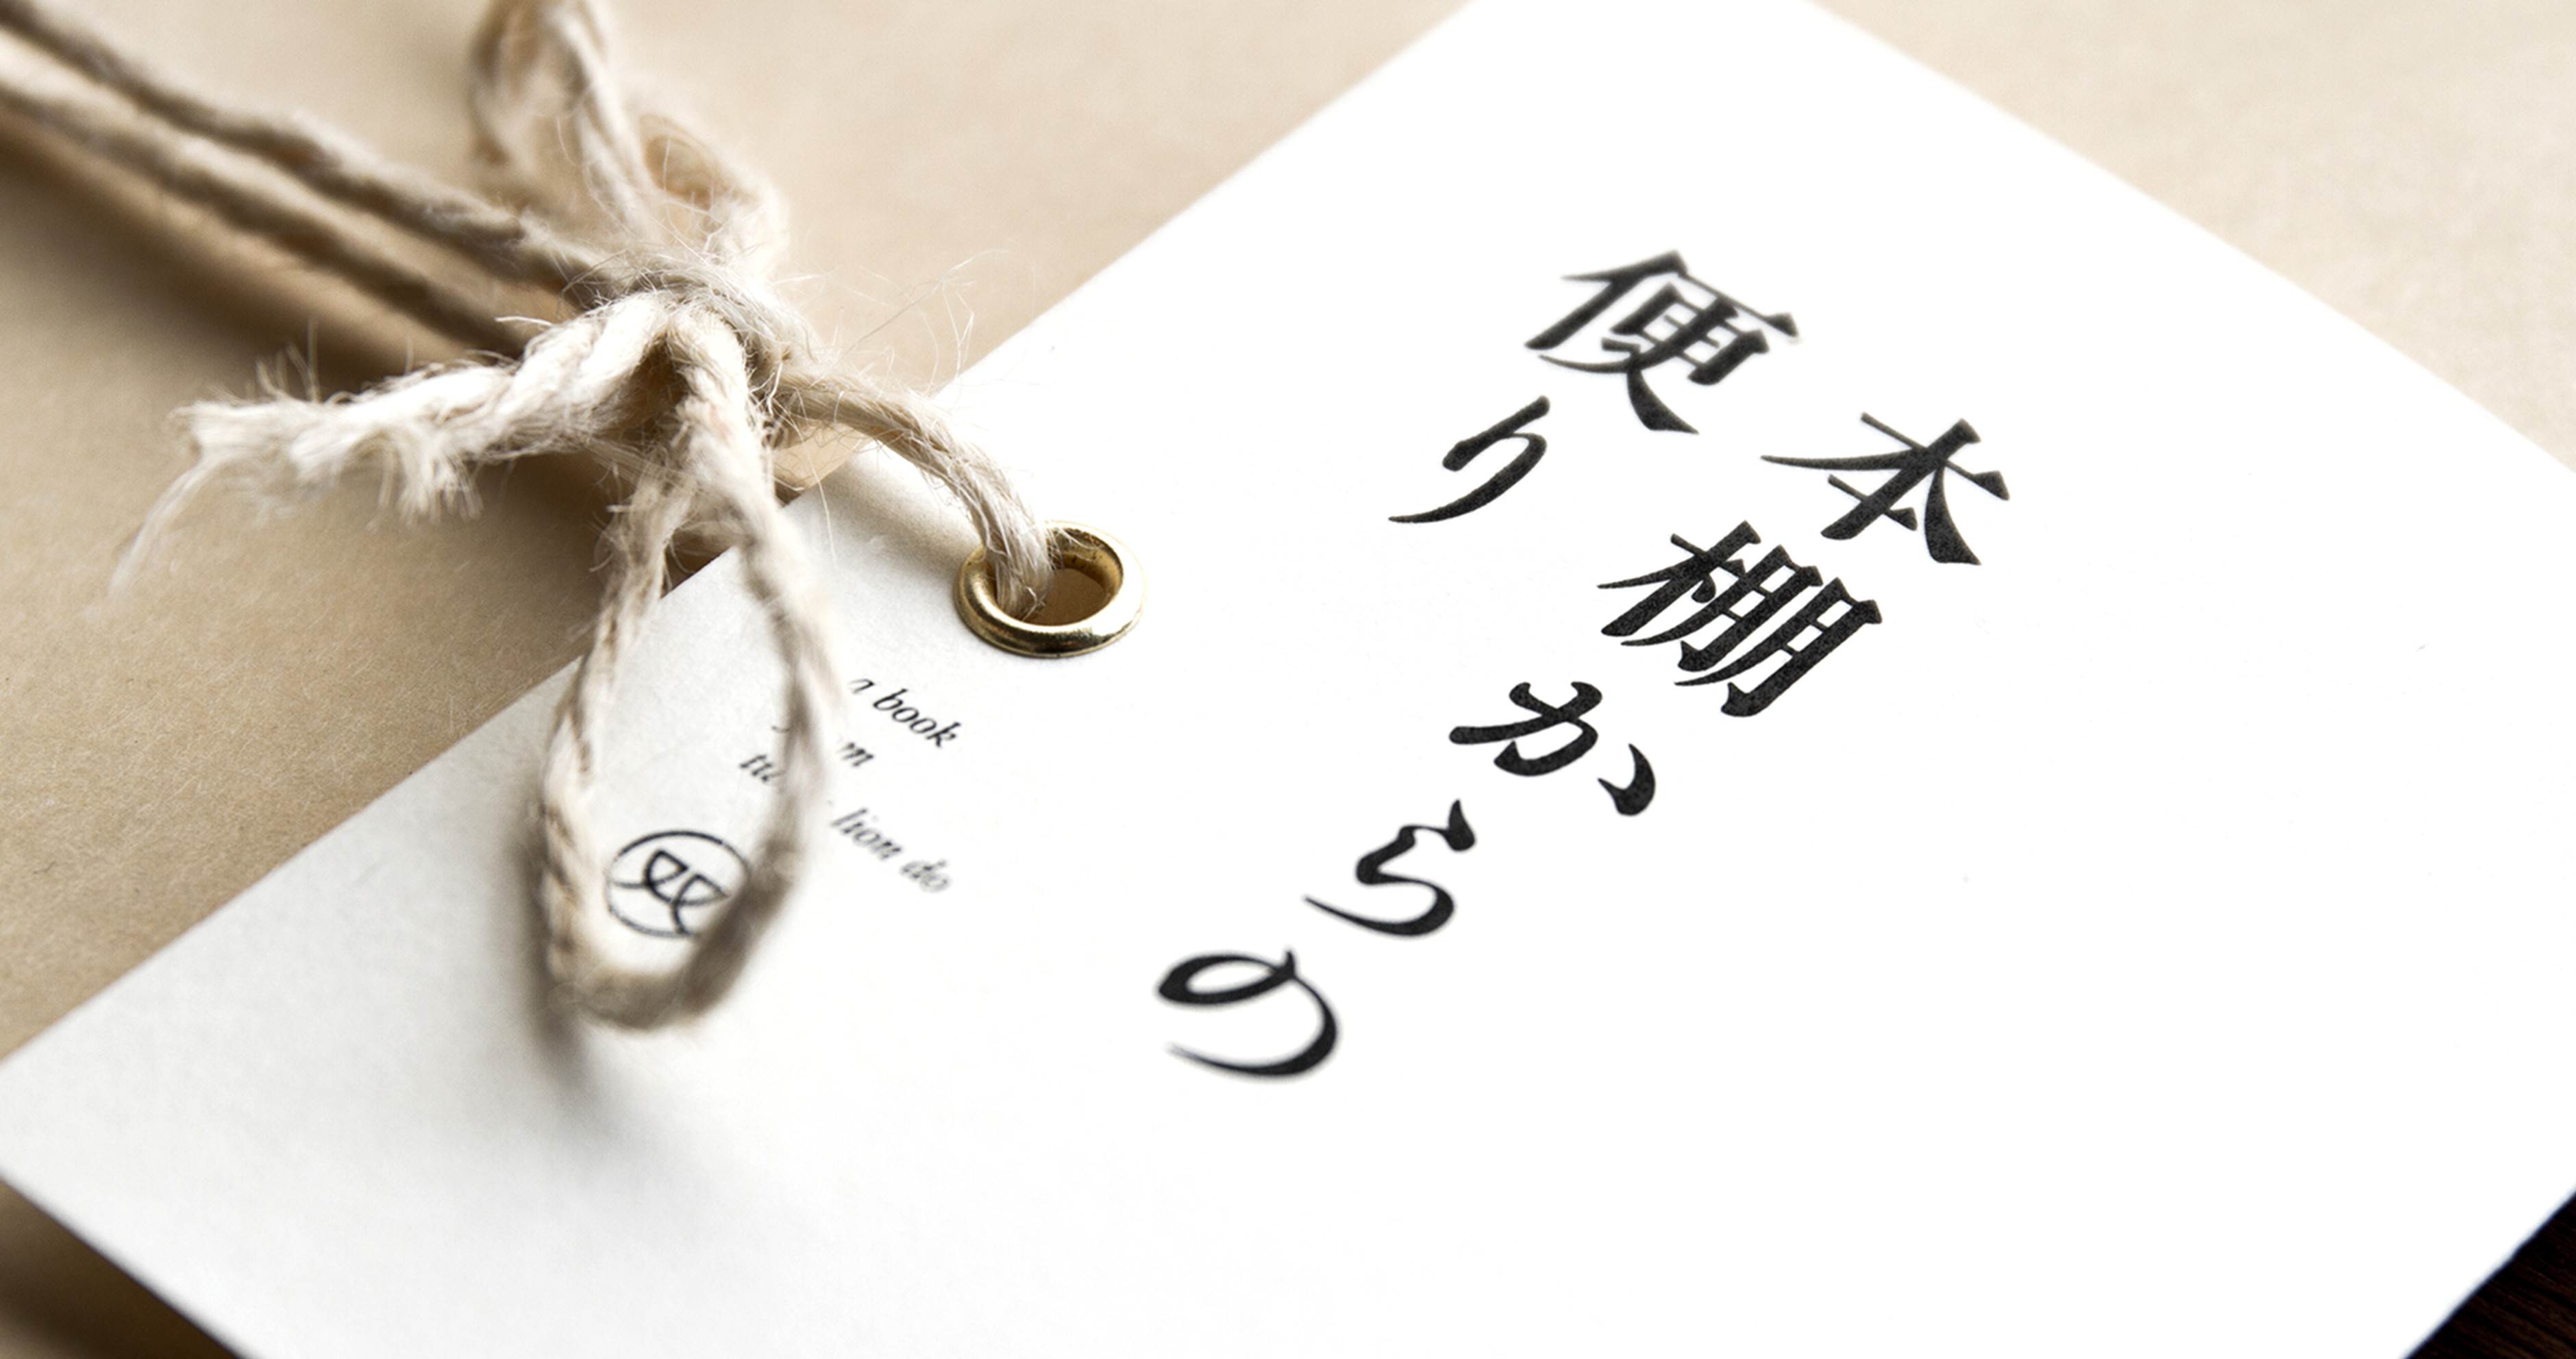 本棚からの
便り
a book
lion do